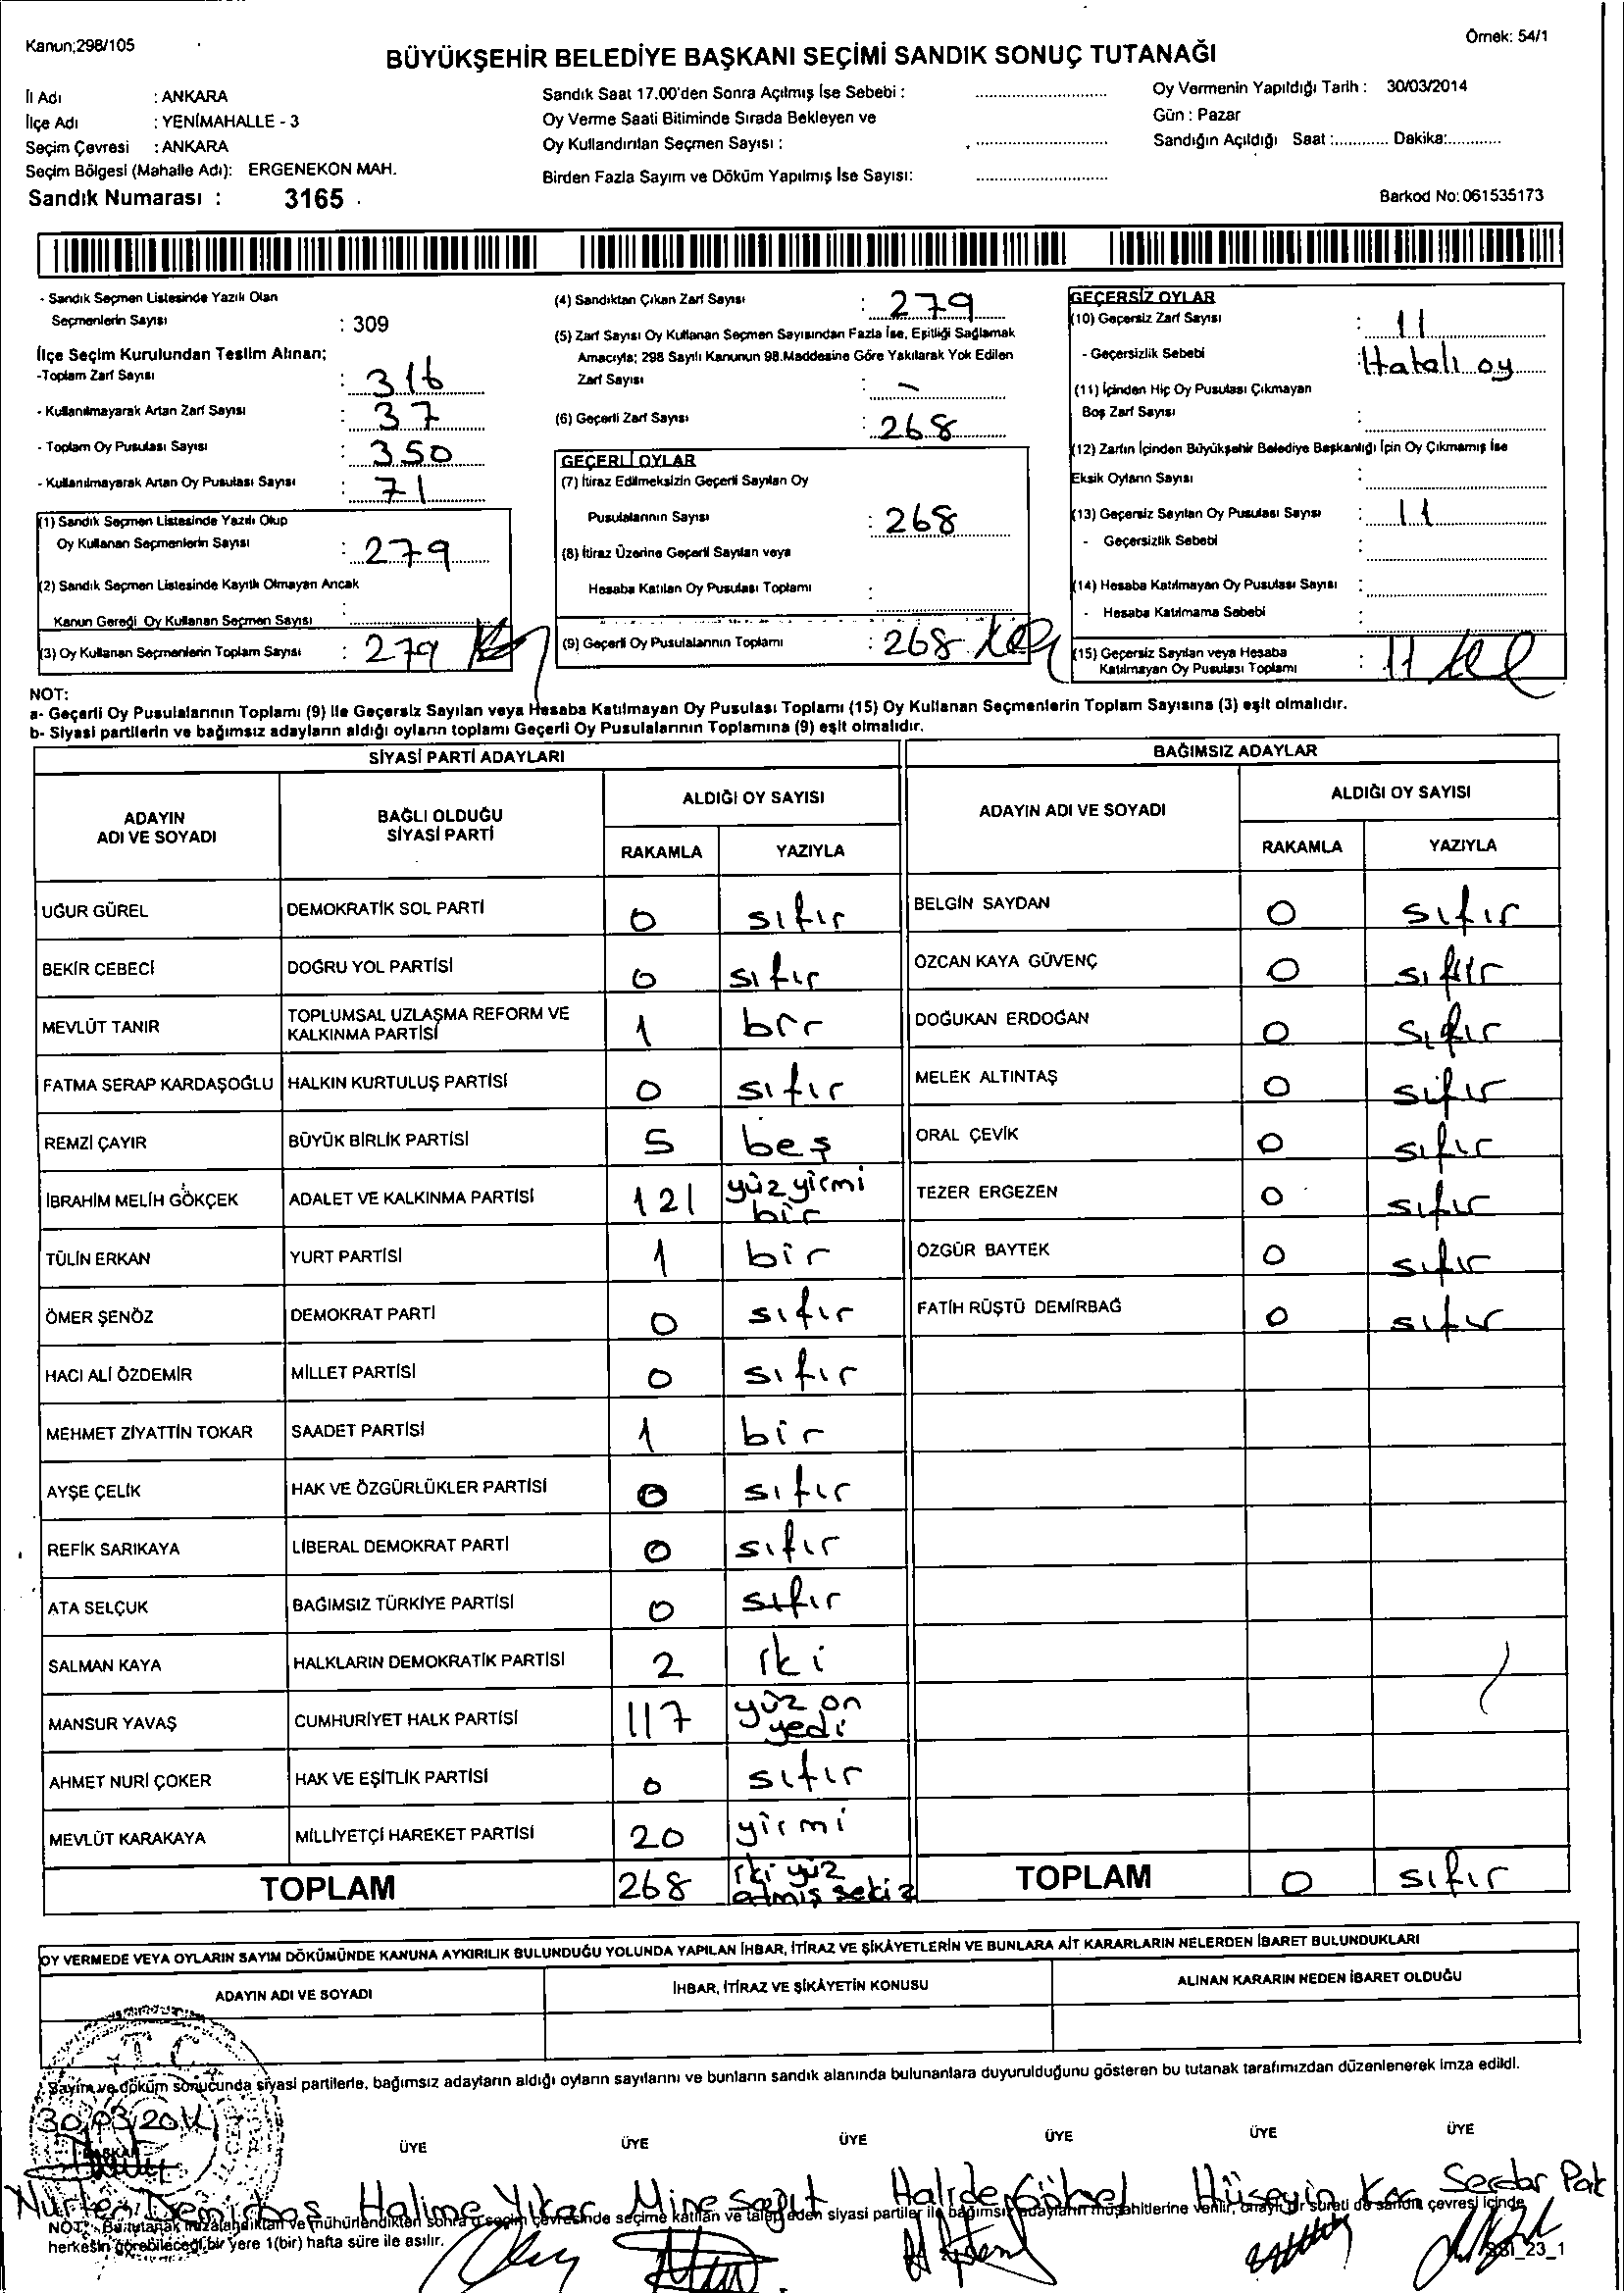 Kanun;298/105
Örnek: 54/1
BÜYÜKŞEHİR BELEDİYE BAŞKANI SEÇİMİ SANDIK SONUÇ TUTANAĞI
İl Adı : ANKARA
İlçe Adı : YENİMAHALLE - 3
Seçim Çevresi : ANKARA
Seçim Bölgesi (Mahalle Adı): ERGENEKON MAH.
Sandık Numarası : 3165
Sandık Saat 17.00'den Sonra Açılmış İse Sebebi :
Oy Verme Saati Bitiminde Sırada Bekleyen ve
Oy Kullandırılan Seçmen Sayısı :
Birden Fazla Sayım ve Döküm Yapılmış İse Sayısı:
Oy Vermenin Yapıldığı Tarih : 30/03/2014
Gün : Pazar
Sandığın Açıldığı Saat :............ Dakika:............
Barkod No: 061535173
- Sandık Seçmen Listesinde Yazılı Olan
Seçmenlerin Sayısı : 309
İlçe Seçim Kurulundan Teslim Alınan;
-Toplam Zarf Sayısı : 316
- Kullanılmayarak Artan Zarf Sayısı : 37
- Toplam Oy Pusulası Sayısı : 350
- Kullanılmayarak Artan Oy Pusulası Sayısı : 71
(1) Sandık Seçmen Listesinde Yazılı Olup
Oy Kullanan Seçmenlerin Sayısı : 279
(2) Sandık Seçmen Listesinde Kayıtlı Olmayan Ancak
Kanun Gereği Oy Kullanan Seçmen Sayısı :
(3) Oy Kullanan Seçmenlerin Toplam Sayısı : 279
(4) Sandıktan Çıkan Zarf Sayısı : 279
(5) Zarf Sayısı Oy Kullanan Seçmen Sayısından Fazla İse, Eşitliği Sağlamak
Amacıyla; 298 Sayılı Kanunun 98.Maddesine Göre Yakılarak Yok Edilen
Zarf Sayısı : -
(6) Geçerli Zarf Sayısı : 268
GEÇERLİ OYLAR
(7) İtiraz Edilmeksizin Geçerli Sayılan Oy
Pusulalarının Sayısı : 268
(8) İtiraz Üzerine Geçerli Sayılan veya
Hesaba Katılan Oy Pusulası Toplamı :
(9) Geçerli Oy Pusulalarının Toplamı : 268
GEÇERSİZ OYLAR
(10) Geçersiz Zarf Sayısı : 11
- Geçersizlik Sebebi : Hatalı oy
(11) İçinden Hiç Oy Pusulası Çıkmayan
Boş Zarf Sayısı :
(12) Zarfın İçinden Büyükşehir Belediye Başkanlığı İçin Oy Çıkmamış İse
Eksik Oyların Sayısı :
(13) Geçersiz Sayılan Oy Pusulası Sayısı : 11
- Geçersizlik Sebebi :
(14) Hesaba Katılmayan Oy Pusulası Sayısı :
- Hesaba Katılmama Sebebi :
(15) Geçersiz Sayılan veya Hesaba
Katılmayan Oy Pusulası Toplamı : 11
NOT:
a- Geçerli Oy Pusulalarının Toplamı (9) ile Geçersiz Sayılan veya Hesaba Katılmayan Oy Pusulası Toplamı (15) Oy Kullanan Seçmenlerin Toplam Sayısına (3) eşit olmalıdır.
b- Siyasi partilerin ve bağımsız adayların aldığı oyların toplamı Geçerli Oy Pusulalarının Toplamına (9) eşit olmalıdır.
SİYASİ PARTİ ADAYLARI
ADAYIN ADI VE SOYADI
BAĞLI OLDUĞU SİYASİ PARTİ
ALDIĞI OY SAYISI
RAKAMLA YAZIYLA
UĞUR GÜREL DEMOKRATİK SOL PARTİ 0 sıfır
BEKİR CEBECİ DOĞRU YOL PARTİSİ 0 sıfır
MEVLÜT TANIR TOPLUMSAL UZLAŞMA REFORM VE KALKINMA PARTİSİ 1 bir
FATMA SERAP KARDAŞOĞLU HALKIN KURTULUŞ PARTİSİ 0 sıfır
REMZİ ÇAYIR BÜYÜK BİRLİK PARTİSİ 5 beş
İBRAHİM MELİH GÖKÇEK ADALET VE KALKINMA PARTİSİ 121 yüz yirmi bir
TÜLİN ERKAN YURT PARTİSİ 1 bir
ÖMER ŞENÖZ DEMOKRAT PARTİ 0 sıfır
HACI ALİ ÖZDEMİR MİLLET PARTİSİ 0 sıfır
MEHMET ZİYATTİN TOKAR SAADET PARTİSİ 1 bir
AYŞE ÇELİK HAK VE ÖZGÜRLÜKLER PARTİSİ 0 sıfır
REFİK SARIKAYA LİBERAL DEMOKRAT PARTİ 0 sıfır
ATA SELÇUK BAĞIMSIZ TÜRKİYE PARTİSİ 0 sıfır
SALMAN KAYA HALKLARIN DEMOKRATİK PARTİSİ 2 iki
MANSUR YAVAŞ CUMHURİYET HALK PARTİSİ 117 yüz on yedi
AHMET NURİ ÇOKER HAK VE EŞİTLİK PARTİSİ 0 sıfır
MEVLÜT KARAKAYA MİLLİYETÇİ HAREKET PARTİSİ 20 yirmi
TOPLAM 268 iki yüz atmış sekiz
BAĞIMSIZ ADAYLAR
ADAYIN ADI VE SOYADI
ALDIĞI OY SAYISI
RAKAMLA YAZIYLA
BELGİN SAYDAN 0 sıfır
ÖZCAN KAYA GÜVENÇ 0 sıfır
DOĞUKAN ERDOĞAN 0 sıfır
MELEK ALTINTAŞ 0 sıfır
ORAL ÇEVİK 0 sıfır
TEZER ERGEZEN 0 sıfır
ÖZGÜR BAYTEK 0 sıfır
FATİH RÜŞTÜ DEMİRBAĞ 0 sıfır
TOPLAM 0 sıfır
OY VERMEDE VEYA OYLARIN SAYIM DÖKÜMÜNDE KANUNA AYKIRILIK BULUNDUĞU YOLUNDA YAPILAN İHBAR, İTİRAZ VE ŞİKÂYETLERİN VE BUNLARA AİT KARARLARIN NELERDEN İBARET BULUNDUKLARI
ADAYIN ADI VE SOYADI
İHBAR, İTİRAZ VE ŞİKÂYETİN KONUSU
ALINAN KARARIN NEDEN İBARET OLDUĞU
T.C.
Sayım ve döküm sonucunda siyasi partilerle, bağımsız adayların aldığı oyların sayılarını ve bunların sandık alanında bulunanlara duyurulduğunu gösteren bu tutanak tarafımızdan düzenlenerek imza edildi.
30.03.2014
BAŞKAN ÜYE ÜYE ÜYE ÜYE ÜYE ÜYE
Nurten Demirbaş Halime Yıkar Mine Söğüt Halide Hüseyin Koç Serdar Pak
NOT: Bu tutanak imzalandıktan ve mühürlendikten sonra o seçim çevresinde seçime katılan ve talep eden siyasi partiler ile bağımsız adayların müşahitlerine verilir, onaylı bir sureti de sandık çevresi içinde
herkesin görebileceği bir yere 1(bir) hafta süre ile asılır.